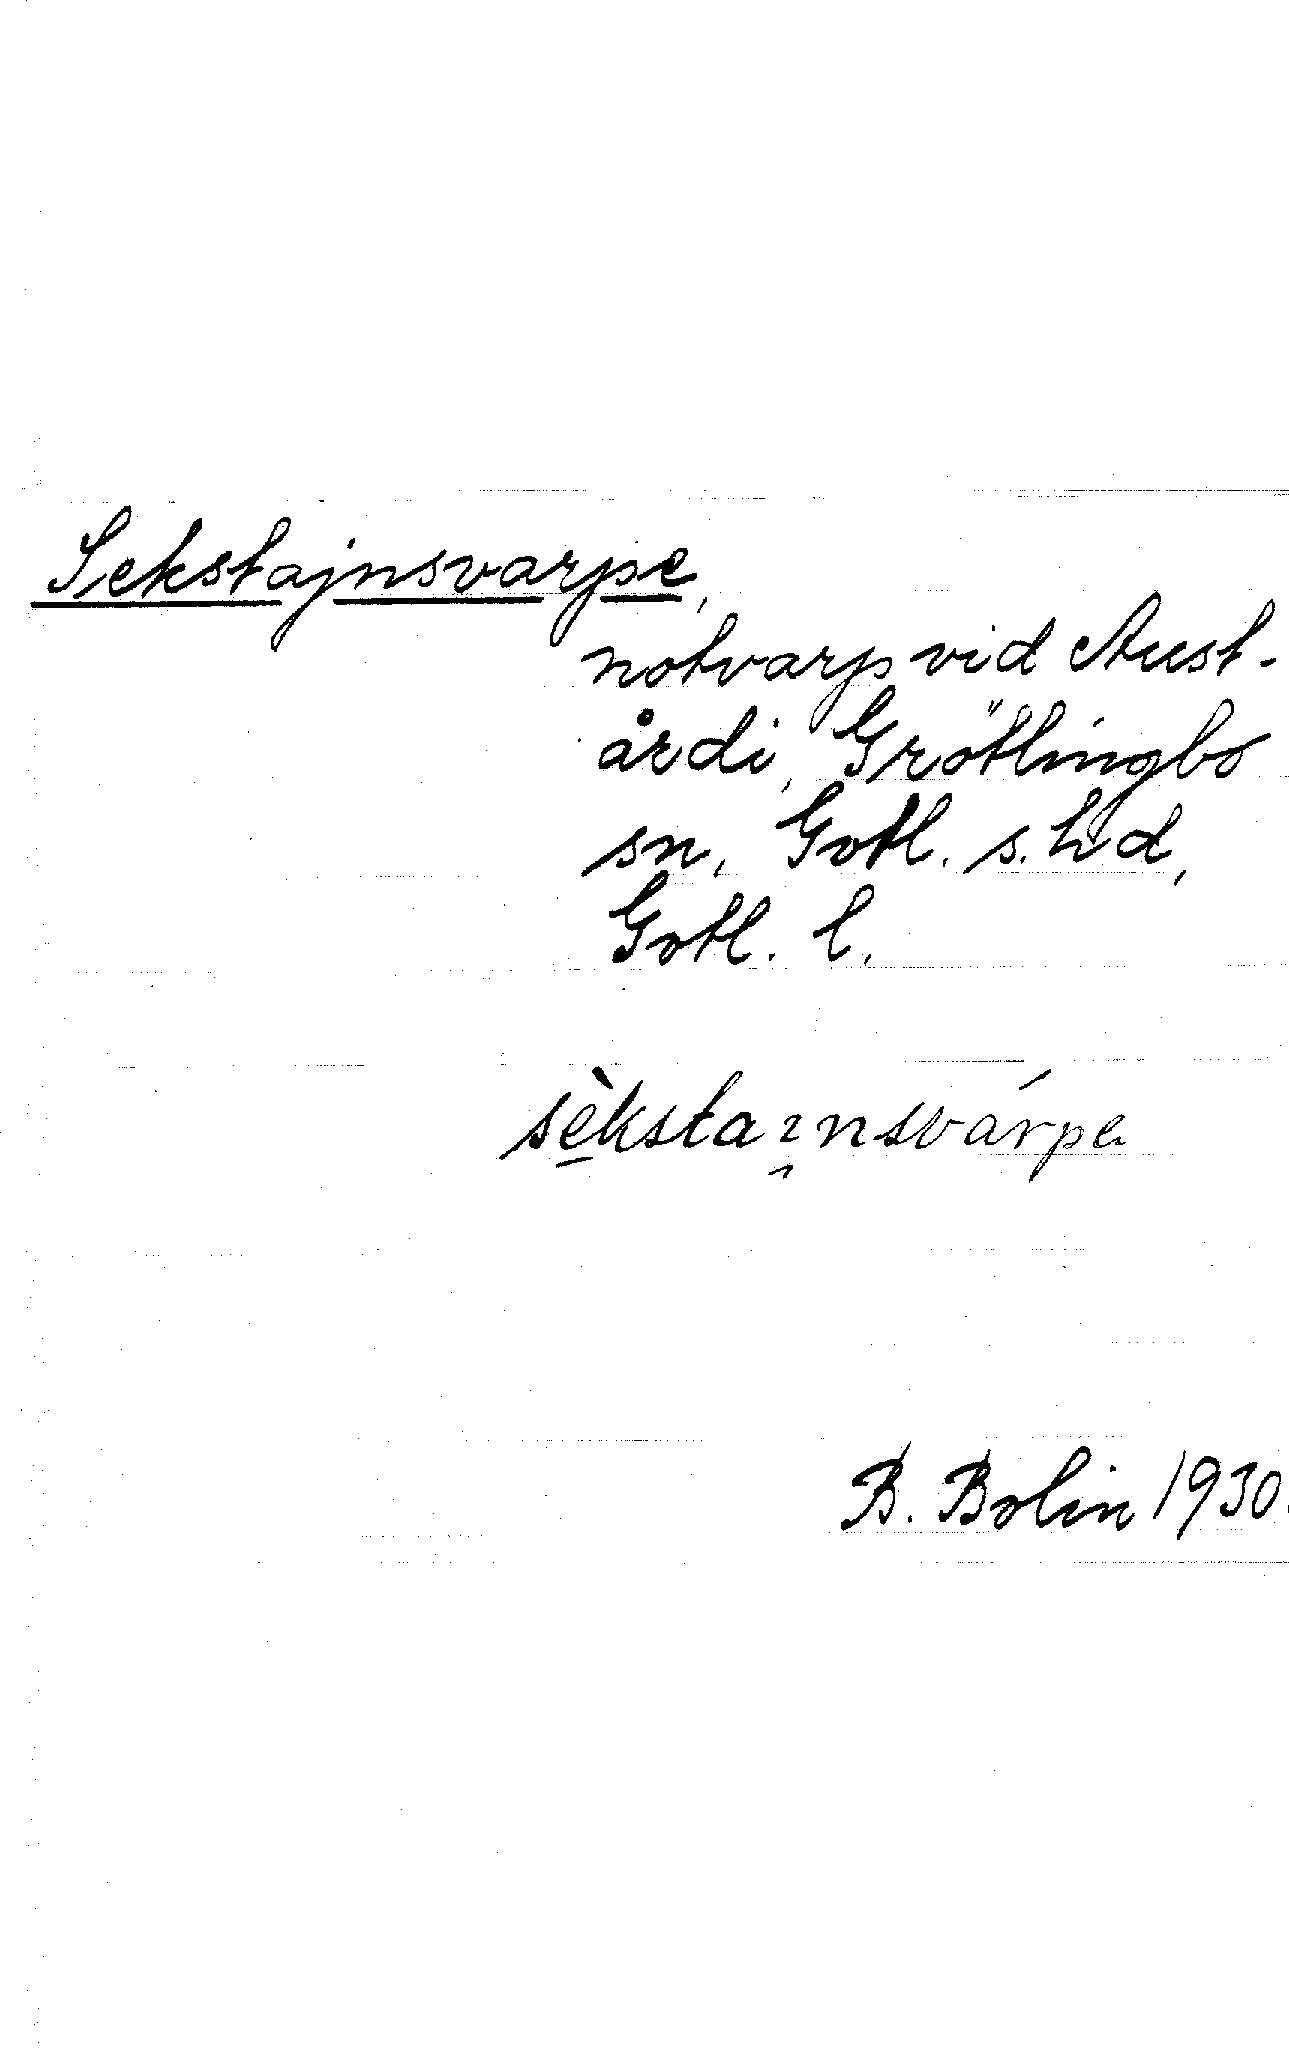 Sekstajnsvarpe,
notvarp vid Aust-
årdi, Grötlingbo
sn, Gotl. s. hd,
Gotl. l.
sèkstaınsvárpe
B. Bolin 1930.